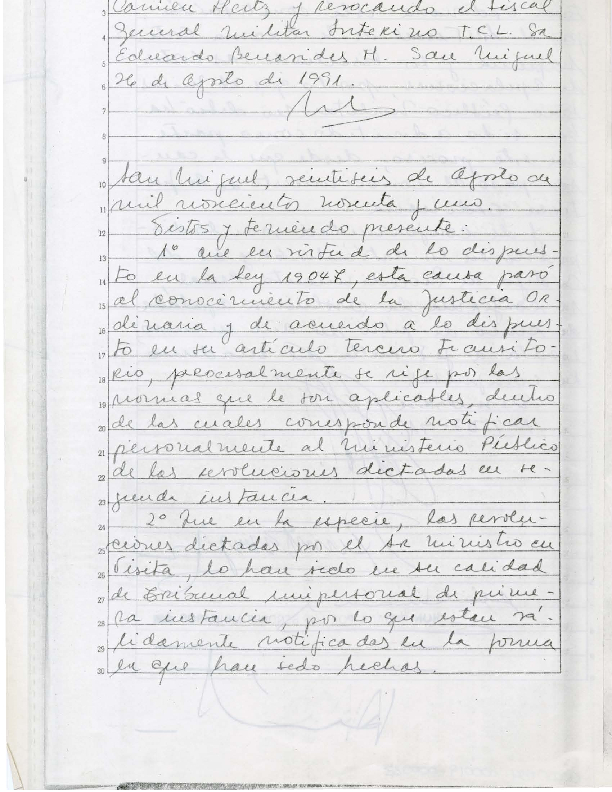 Carmen Hertz y revocando el Fiscal
3
General Militar Interino T.C.L. Sr.
4
Eduardo Benavides H. San Miguel
5
26 de Agosto de 1991.
6
7
8
9
San Miguel, veintiseis de Agosto de
10
mil novecientos noventa y uno.
11
Vistos y teniendo presente:
12
1º que en virtud de lo dispues-
13
to en la Ley 19047, esta causa pasó
14
al conocimiento de la Justicia Or-
15
dinaria y de acuerdo a lo dispues-
16
to en su artículo tercero transito-
17
rio, procesalmente se rige por las
18
normas que le son aplicables, dentro
19
de las cuales corresponde notificar
20
personalmente al Ministerio Público
21
de las resoluciones dictadas en se-
22
gunda instancia.
23
2º Que en la especie, las resolu-
24
ciones dictadas por el Sr Ministro en
25
Visita, lo han sido en su calidad
26
de Tribunal unipersonal de prime-
27
ra instancia, por lo que estan vá-
28
lidamente notificadas en la forma
29
en que han sido hechas.
30